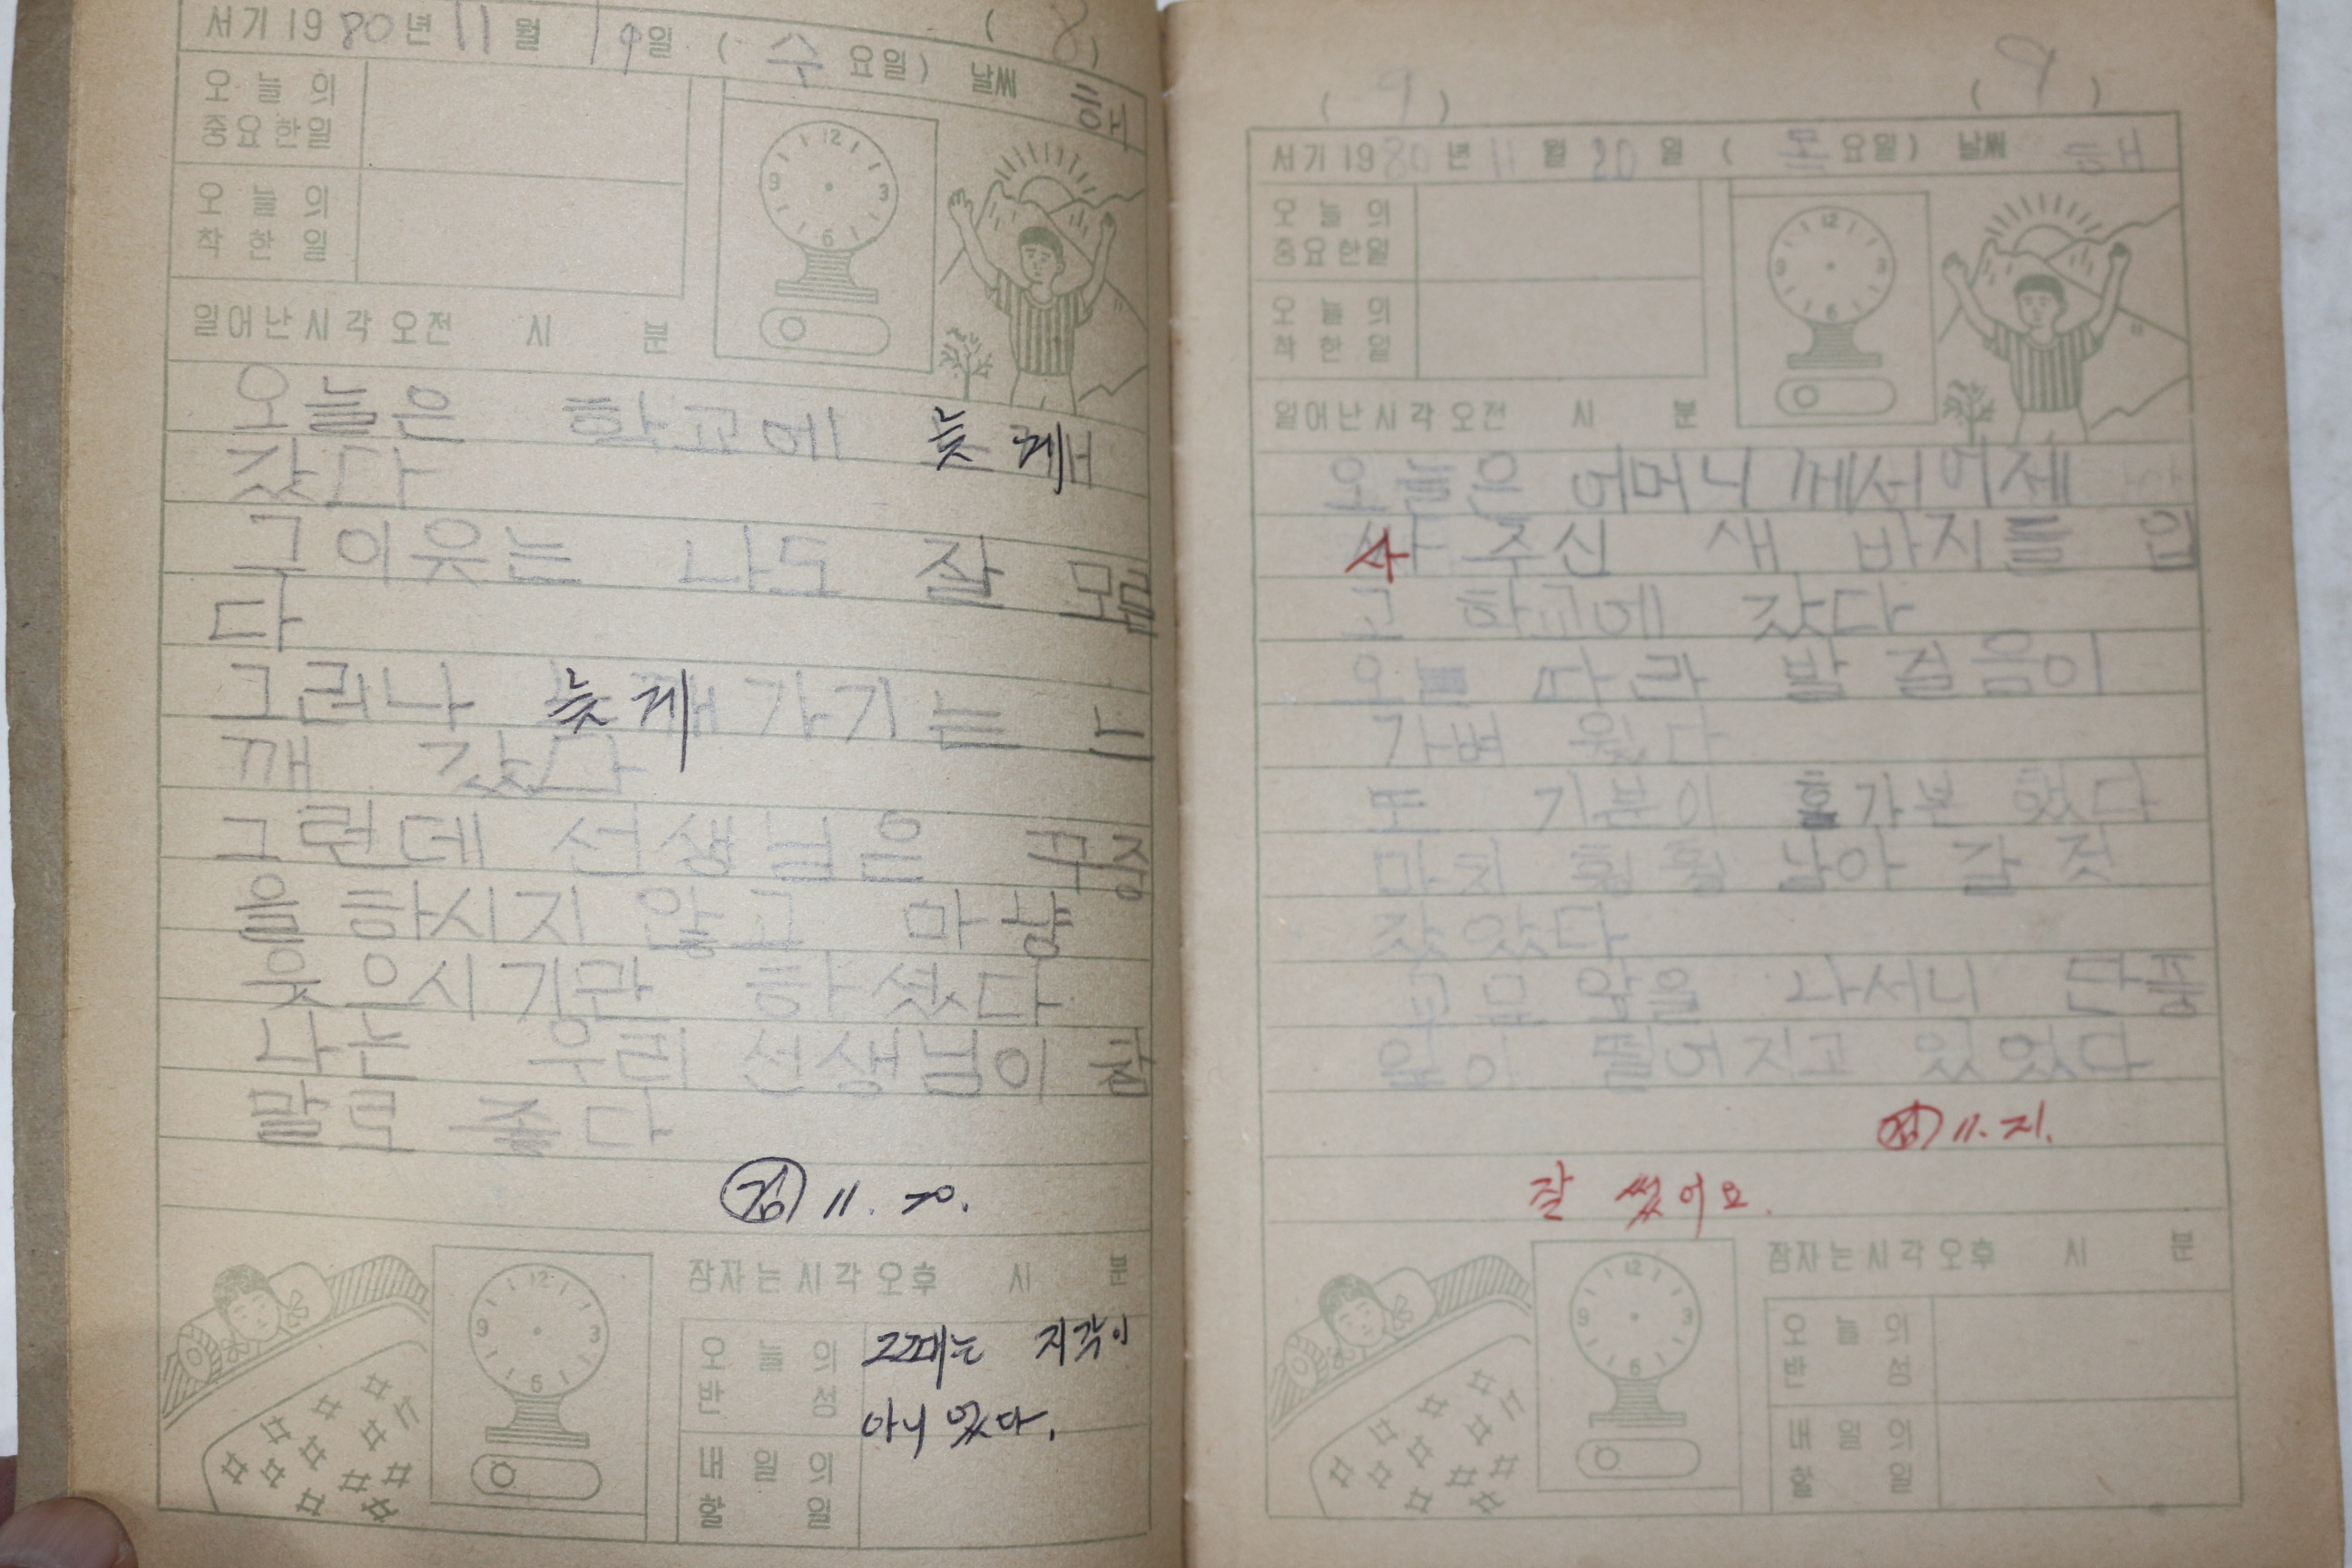 (8)
서기 1980년 11월 19일 (수요일) 날씨 해
오늘의
중요한일
오늘의
착한일
12
9 3
6
일어난시각 오전 시 분
오늘은 학교에 늦게
갔다
그이윳는 나도 잘 모름
다
그러나 늦게 가기는 느
깨 갔다
그런데 선생님은 꾸중
을 하시지 않고 마냥
웃으시기만 하셧다
나는 우리 선생님이 참
말로 좋다
검 11. 20.
12
9 3
6
잠자는시각 오후 시 분
오늘의
반성
그때는 지각이
아니었다.
내일의
할일
(9) (9)
서기 1980년 11월 20일 (목요일) 날씨 해
오늘의
중요한일
오늘의
착한일
12
9 3
6
일어난시각 오전 시 분
오늘은 어머니께서 어제
사 주신 새 바지를 입
고 학교에 갔다
오늘 다라 발걸음이
가벼웠다
또 기분이 홀가분 했다
마치 훨훨 날아 갈 것
갔았다
교문 앞을 나서니 단풍
잎이 떨어지고 있었다
검 11. 21.
잘 썼어요.
12
9 3
6
잠자는시각 오후 시 분
오늘의
반성
내일의
할일